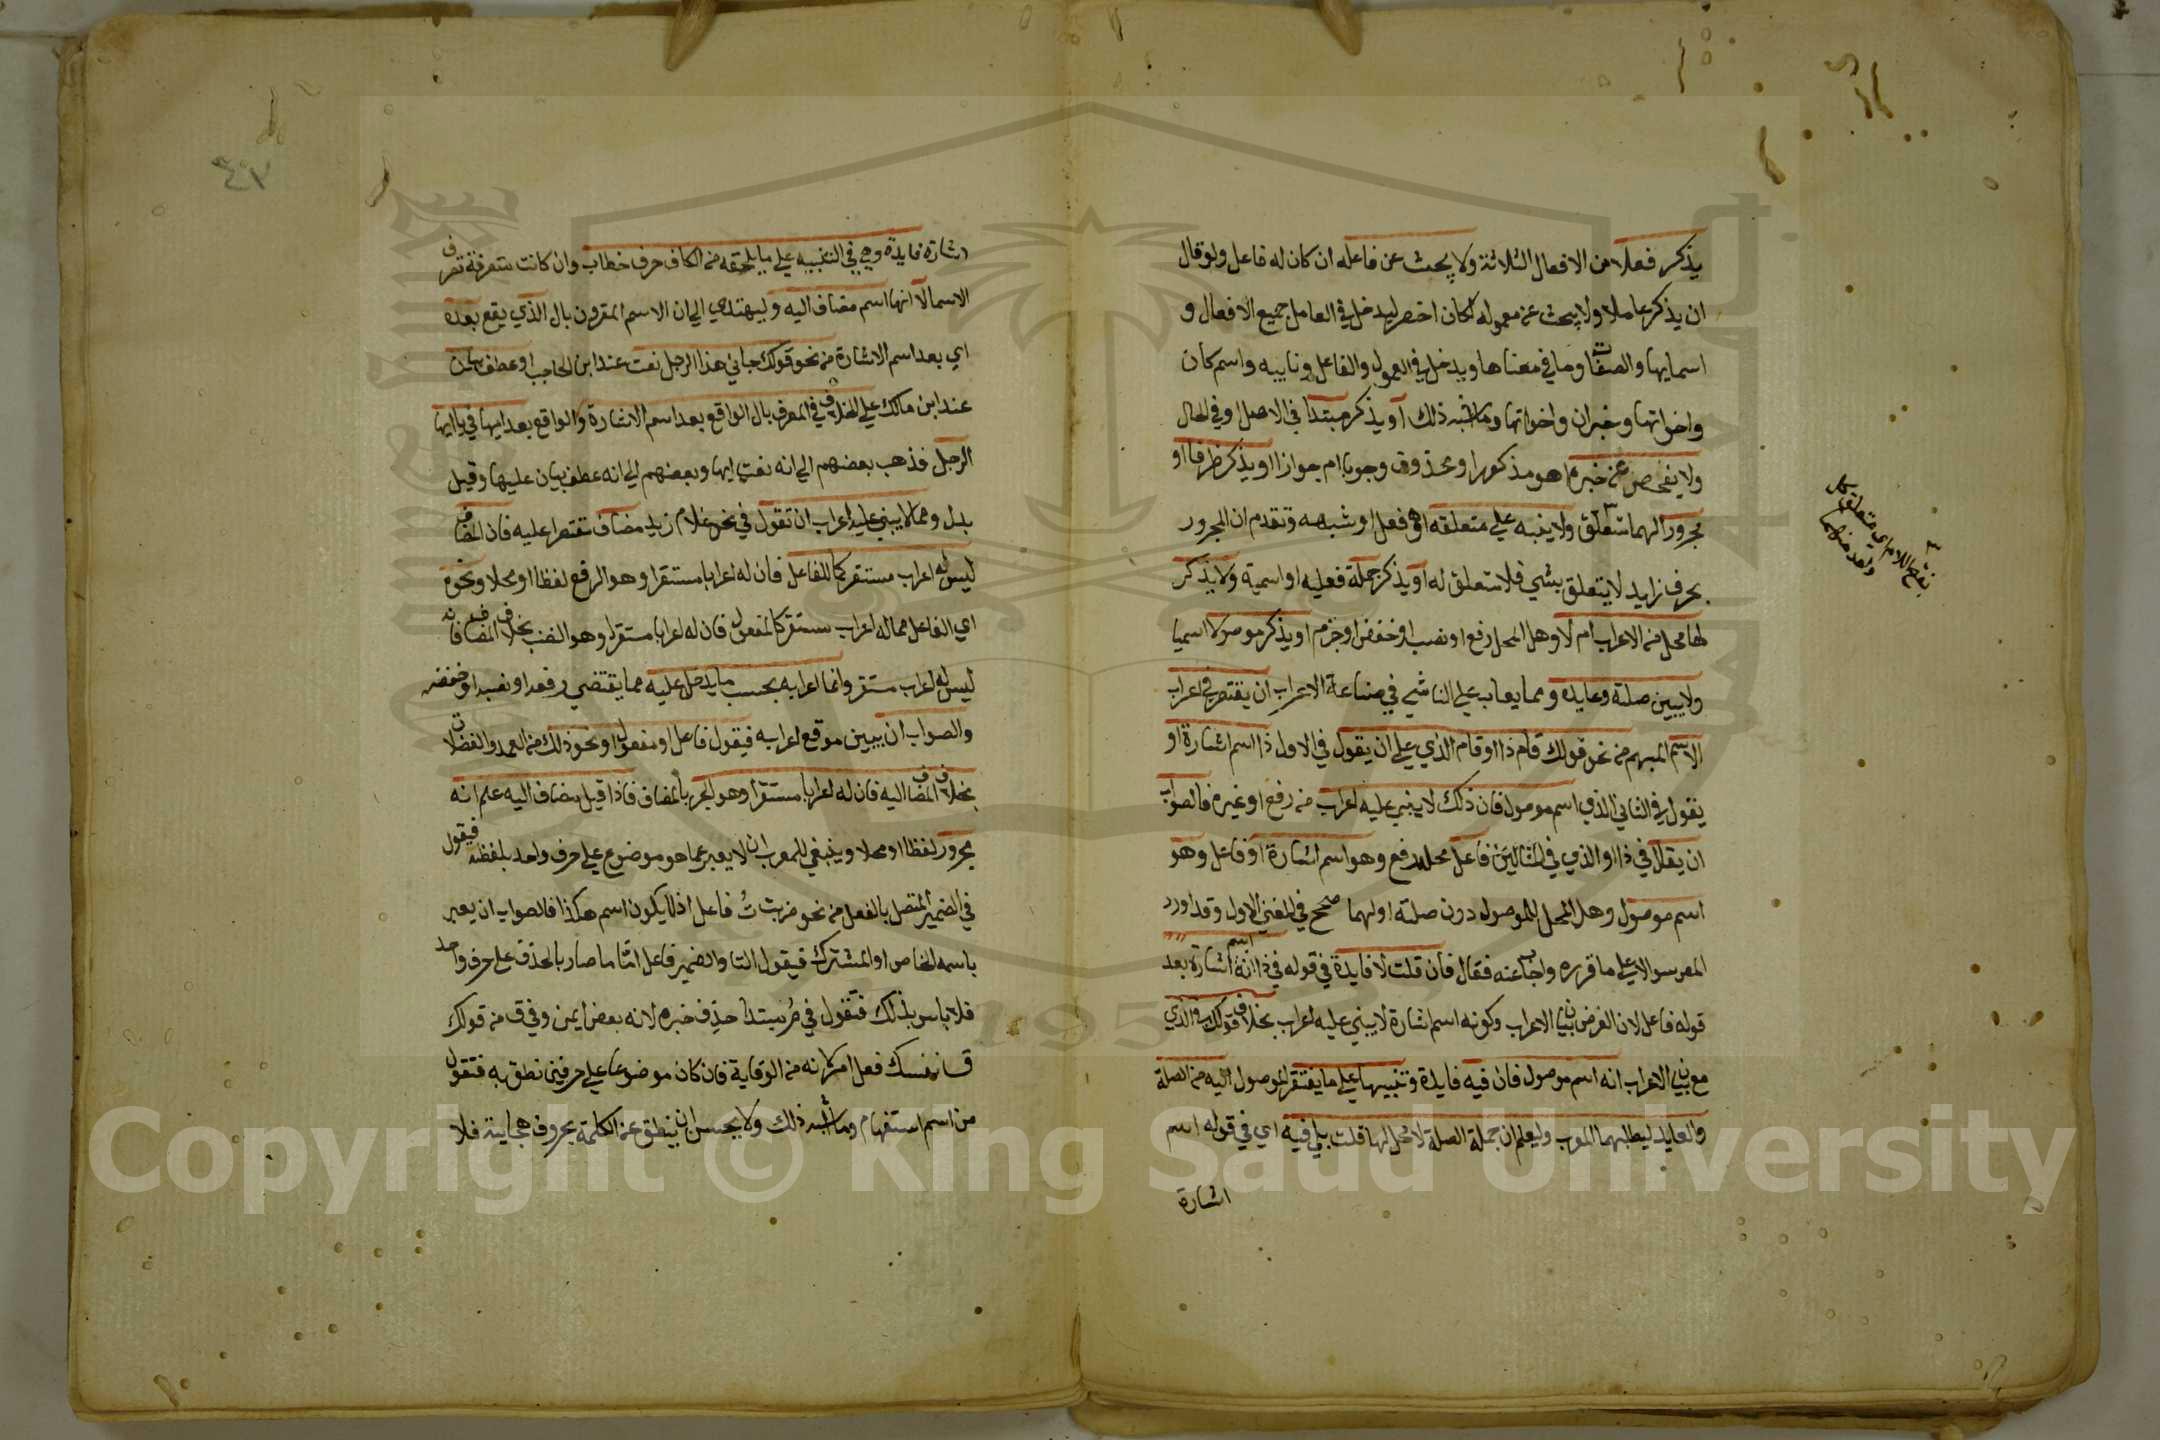 يذكر فعلا من الافعال الثلاثة ولا يبحث عن فاعله ان كان له فاعل ولو قال
ان يذكر عاملا ولا يبحث عن معموله لكان اخصر ليدخل في العامل جميع الافعال و
اسمايها والصفات وما في معناها ويدخل في المعمول والفاعل ونايبه واسم كان
واخواتها وخبر ان واخواتها وما اشبه ذلك أو يذكر مبتدا في الاصل او في الحال
ولا يفحص عن خبره اهو مذكور او محذوف وجوبا ام جوازا او يذكر ظرفا او
مجرورا لهما متعلق ولا ينبه علي متعلقه اهو فعل او شبهه وتقدم ان المجرور
بحرف زايد لا يتعلق بشي فلا متعلق له أو يذكر جملة فعليه او اسمية ولا يذكر
لها محل من الاعراب ام لا وهل المحل رفع او نصب او خفض او جزم او يذكر موصولا اسميا
ولا يبين صلته وعايده ومما يعاب علي الناشي في صناعة الاعراب ان يقتصر في اعراب
الاسم المبهم من نحو قولك قام ذا او قام الذي علي ان يقول في الاول ذا اسم اشارة او
يقول في الثاني الذي اسم موصول فان ذلك لا ينبني عليه اعراب من رفع او غيره فالصواب
ان يقال في ذا او الذي في المثالين فاعل محله رفع وهو اسم اشارة او فاعل وهو
اسم موصول وهل المحل للموصول دون صلته او لهما صحح في المغني الاول وقد اورد
المص سوالا علي ما قرره واجاب عنه فقال فان قلت لا فايدة في قوله في ذا انه اسم اشارة بعد
قوله فاعل لان الغرض بيان الاعراب وكونه اسم اشارة لا يبني عليه اعراب بخلاف قولك في الذي
مع بيان الاعراب انه اسم موصول فان فيه فايدة وتنبيها علي ما يفتقر الموصول اليه من الصلة
والعايد ليطلبهما المعرب وليعلم ان جملة الصلة لا محل لها قلت بلي فيه اي في قوله اسم
اشارة
بفتح اللام اي متعلق كل
واحد منهما
٤٧
اشارة فايدة وهي في التنبيه علي ما يلحقه من الكاف حرف خطاب وان كانت متعرفة تعرف
الاسما لا انها اسم مضاف اليه وليهتدي الي ان الاسم المقرون بال الذي يقع بعده
اي بعد اسم الاشارة من نحو قولك جاني هذا الرجل نعت عند ابن الحاجب او عطف بيان
عند ابن مالك علي الخلاف في المعرف بال الواقع بعد اسم الاشارة والواقع بعد ايها في يا ايها
الرجل فذهب بعضهم الي انه نعت ايها وبعضهم الي انه عطف بيان عليها وقيل
بدل ومما لا يبني عليه اعراب ان تقول في نحو غلام زيد مضاف تقتصر عليه فان المضاف
ليس له اعراب مستقر كما للفاعل فان له اعرابا مستقرا وهو الرفع لفظا او محلا ونحوه
اي الفاعل مما له اعراب مستقر كالمفعول فان له اعرابا مستقرا وهو النصب بخلاف المضاف فانه
ليس له اعراب مستقر وانما اعرابه بحسب ما يدخل عليه مما يقتضي رفعه او نصبه او خفضه
والصواب ان يبين موقع اعرابه فيقول فاعل او مفعول او نحو ذلك من العمد والفضلات
بخلاف المضاف اليه فان له اعرابا مستقرا وهو الجر بالمضاف فاذا قيل مضاف اليه علم انه
مجرور لفظا او محلا وينبغي للمعرب ان لا يعبر عما هو موضوع علي حرف واحد بلفظه فيقول
في الضمير المتصل بالفعل من نحو ضربت تُ فاعل اذ لا يكون اسم هكذا فالصواب ان يعبر
باسمه الخاص او المشترك فيقول التا او الضمير فاعل امّا ما صار بالحذف علي حرف واحد
فلا باس بذلك فتقول في مُ مبتدا حذف خبره لانه بعض ايمن وفي ق من قولك
ق نفسك فعل امر لانه من الوقاية فان كان موضوعا علي حرفين نطق به فتقول
من اسم استفهام وما اشبه ذلك ولا يحسن ان ينطق عن الكلمة بحروف هجايية فلا
Copyright © King Saud University
1957